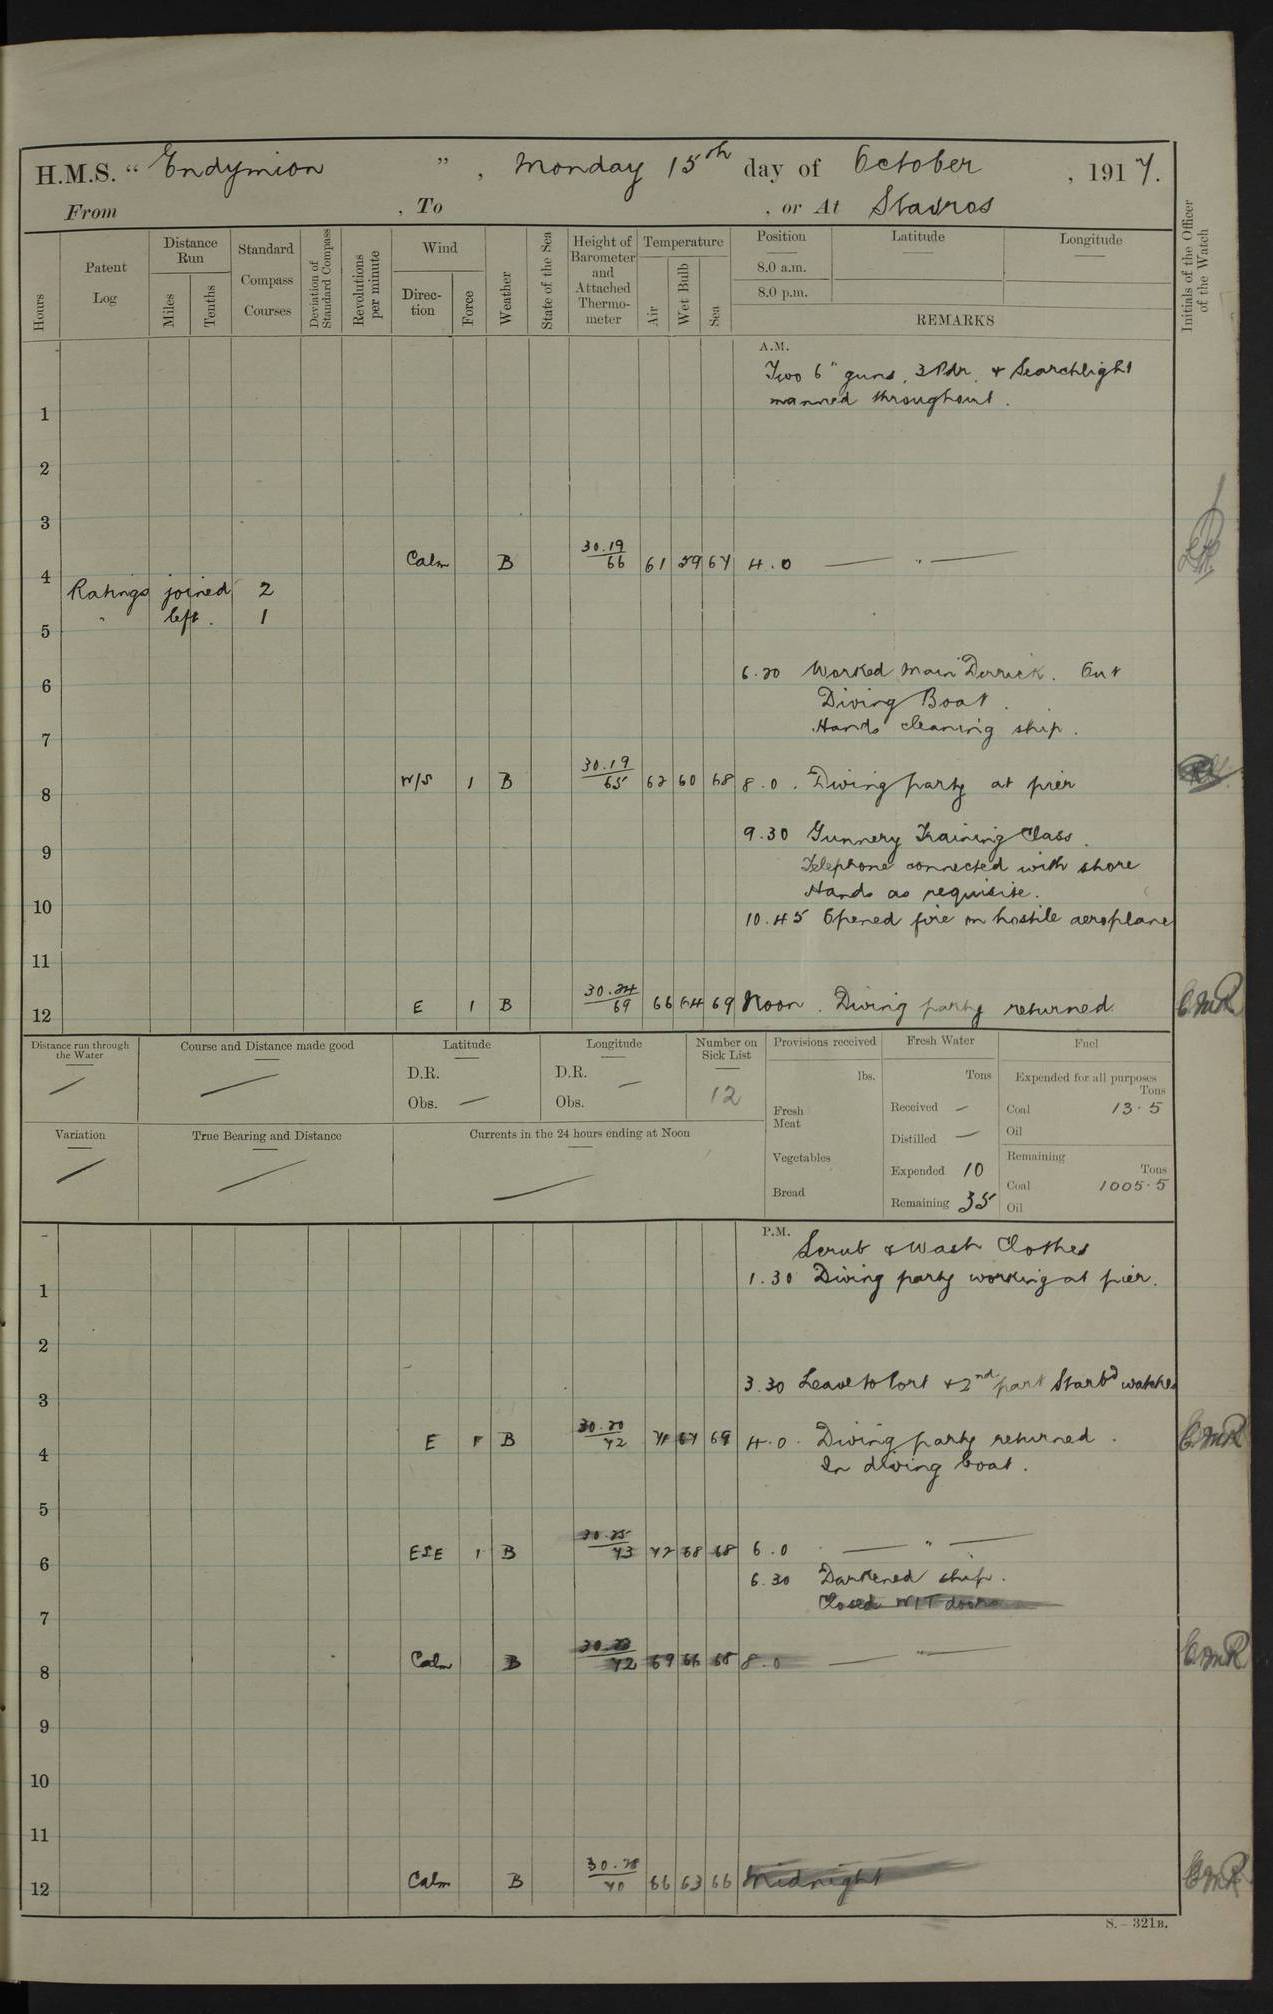 H.M.S. “ Endymion ” , Monday 15th day of October , 1917.
From , To , or At Stavros
Hours
Patent Log
Distance Run
Miles
Tenths
Standard Compass Courses
Deviation of Standard Compass
Revolutions per minute
Wind
Direction
Force
Weather
State of the Sea
Height of Barometer and Attached Thermometer
Temperature
Air
Wet Bulb
Sea
Position
8.0 a.m.
8.0 p.m.
Latitude
Longitude
REMARKS
Initials of the Officer of the Watch
A.M.
Two 6" guns, 3 Pdr. & Searchlight
manned throughout.
1
2
3
Calm B 30.19/66 61 59 67 4.0 — " —
4
Ratings joined 2
" left. 1
5
6.20 Worked Main Derrick. Out
6
Diving Boat.
Hands cleaning ship.
7
W/S 1 B 30.19/65 62 60 68 8.0. Diving party at pier
8
9.30 Gunnery Training Class.
9
Telephone connected with shore
Hands as requisite.
10
10.45 Opened fire on hostile aeroplane
11
E 1 B 30.24/69 66 64 69 Noon. Diving party returned. CMR
12
Distance run through the Water
Course and Distance made good
Latitude
D.R.
Obs. —
Longitude
D.R. —
Obs.
Number on Sick List
12
Variation
True Bearing and Distance
Currents in the 24 hours ending at Noon
Provisions received
lbs.
Fresh Meat
Vegetables
Bread
Fresh Water
Tons
Received —
Distilled —
Expended 10
Remaining 35
Fuel
Expended for all purposes
Tons
Coal 13.5
Oil
Remaining
Tons
Coal 1005.5
Oil
P.M.
Scrub & Wash Clothes
1.30 Diving party working at pier.
1
2
3.30 Leave to Port & 2nd part Starbd watches
3
E 1 B 30.20/72 71 67 69 4.0. Diving party returned. CMR
4
In diving boat.
5
ESE 1 B 30.25/73 72 68 68 6.0 — " —
6
6.30 Darkened ship.
Closed W/T doors
7
Calm B 72 69 66 68 8.0 — " — CMR
8
9
10
11
Calm B 30.28/70 66 63 66 Midnight CMR
12
S.—321B.